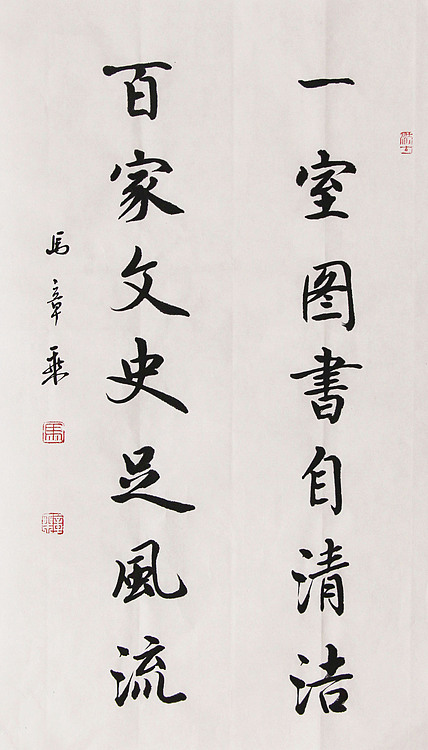 一室图書自清洁
百家文史足風流
馬章乘